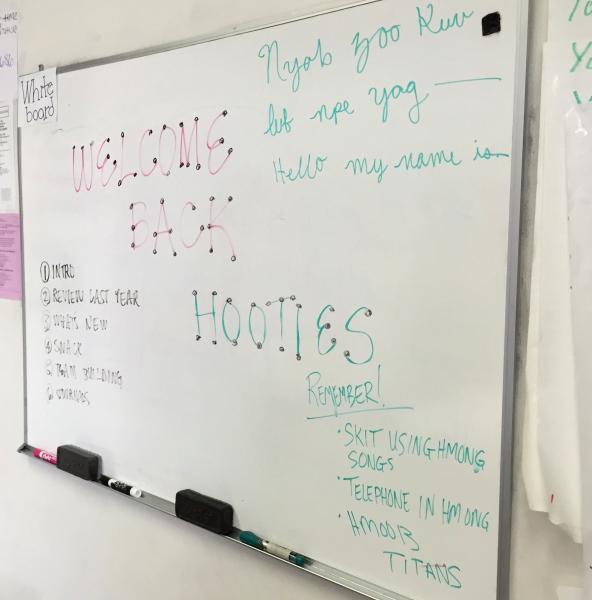 White
board
Nyob zoo Kuv
lub npe yog
Hello my name is
WELCOME
BACK
HOOTIES
① INTRO
② REVIEW LAST YEAR
③ WHATS NEW
④ SNACK
⑤ TEAM BUILDING
REMEMBER!
• SKIT USING HMONG
SONGS
• TELEPHONE IN HMONG
• HMOOB
TITANS